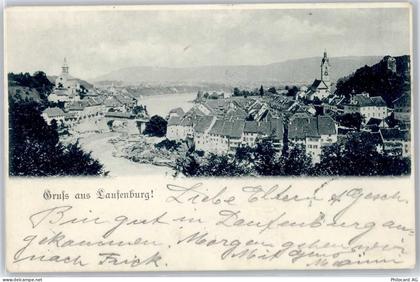 Gruss aus Laufenburg!
Liebe Eltern & Gesch.
Bin gut in Laufenburg an-
gekommen, Morgen gehen wir
nach Frick. Mit Gruss
(c) Philokartist-Archiv AG